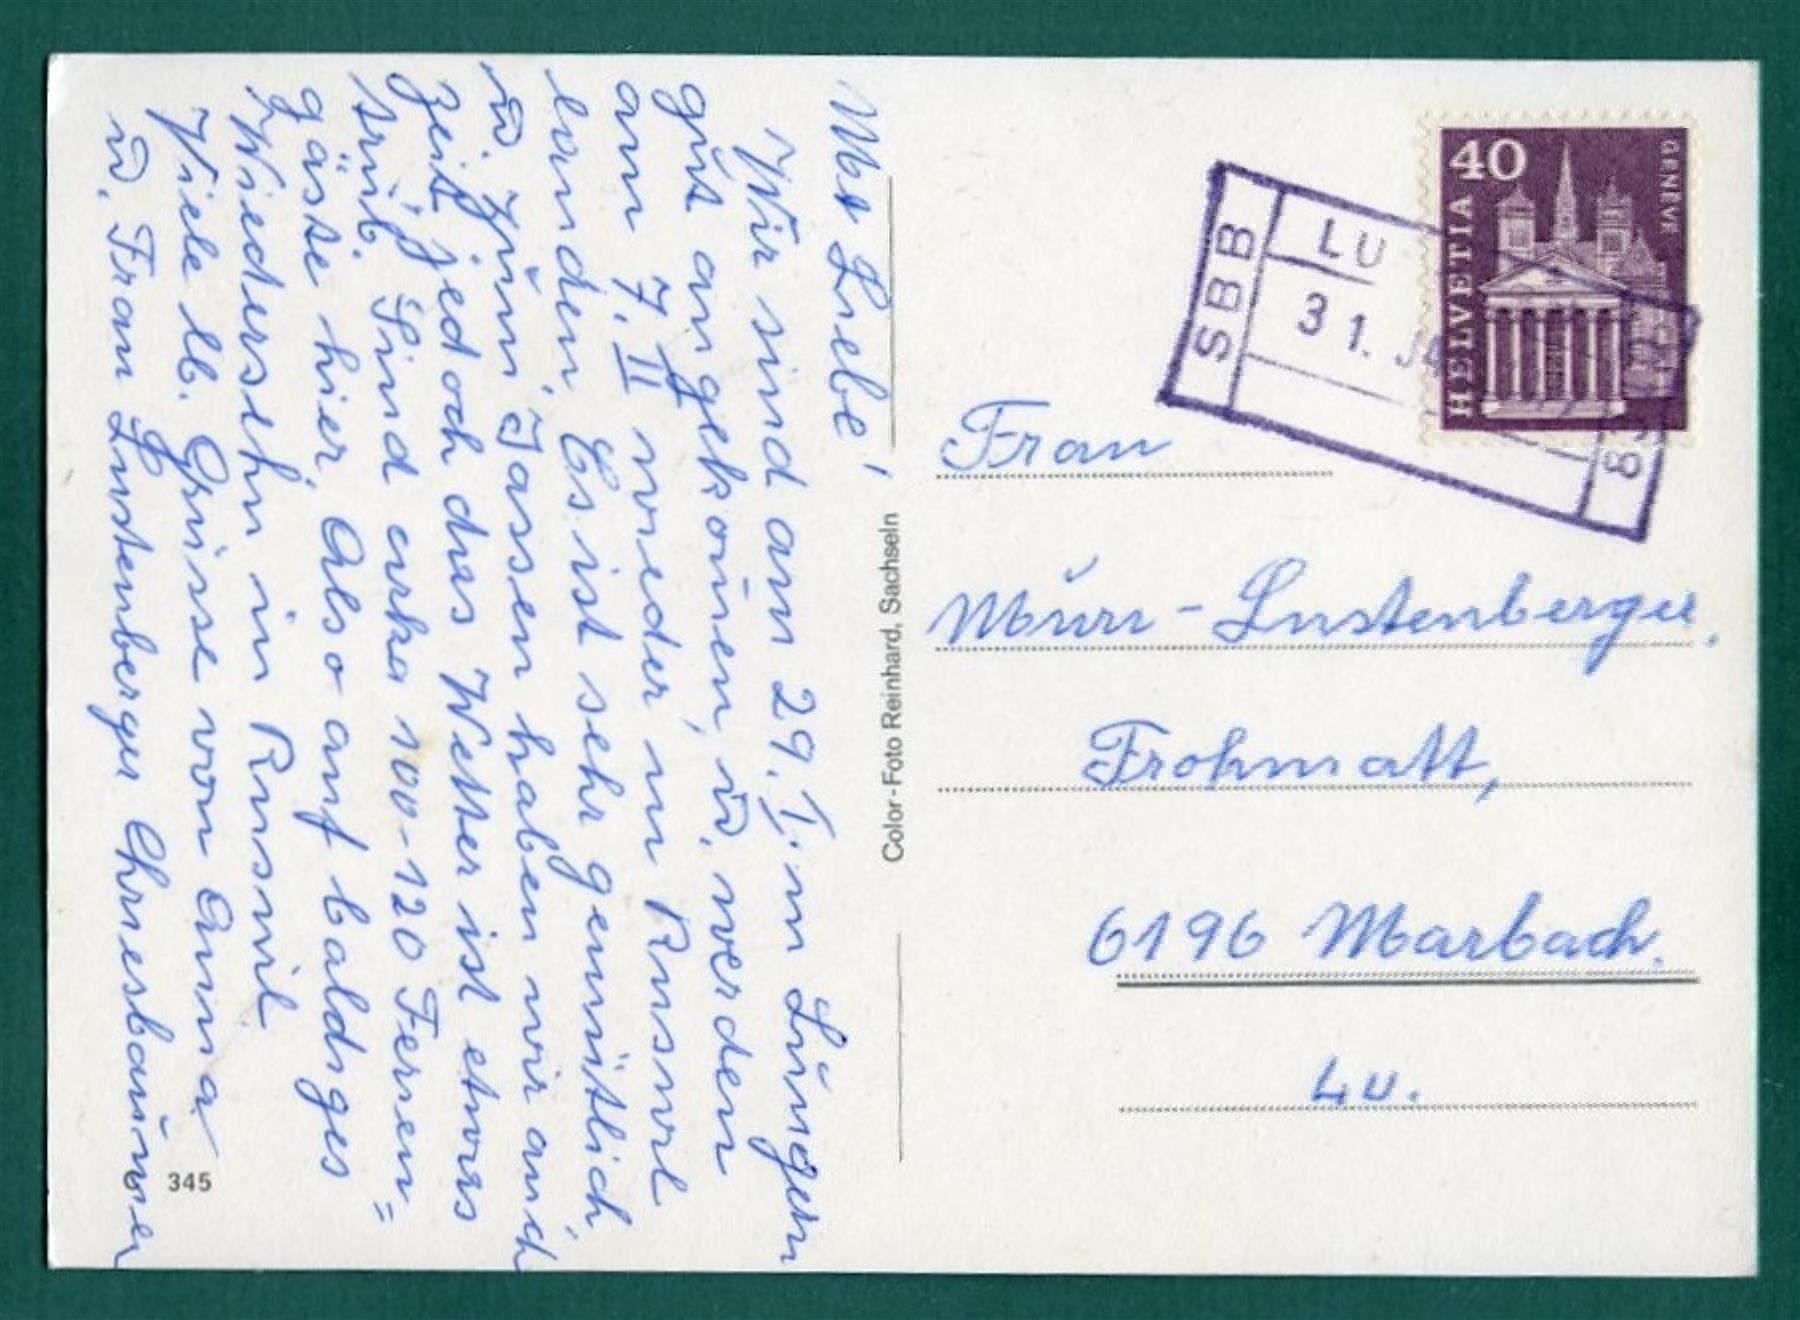 Mes Liebe!
Wir sind am 29. I. in Lungern
gut angekom̄en, u. werden
am 7. II wieder in Ruswil
landen. Es ist sehr gemütlich,
u. zum Jassen haben wir auch
Zeit, jedoch das Wetter ist etwas
trüb. Sind cirka 100-120 Ferien=
gäste hier. Also auf baldiges
Wiedersehn in Ruswil
Viele lb. Grüsse von Anna
u. Frau Lustenberger
345
Color-Foto Reinhard, Sachseln
40
HELVETIA
GENEVE
SBB
LU
31. JA
Frau
Murr-Lustenberger.
Frohmatt,
6196 Marbach.
LU.